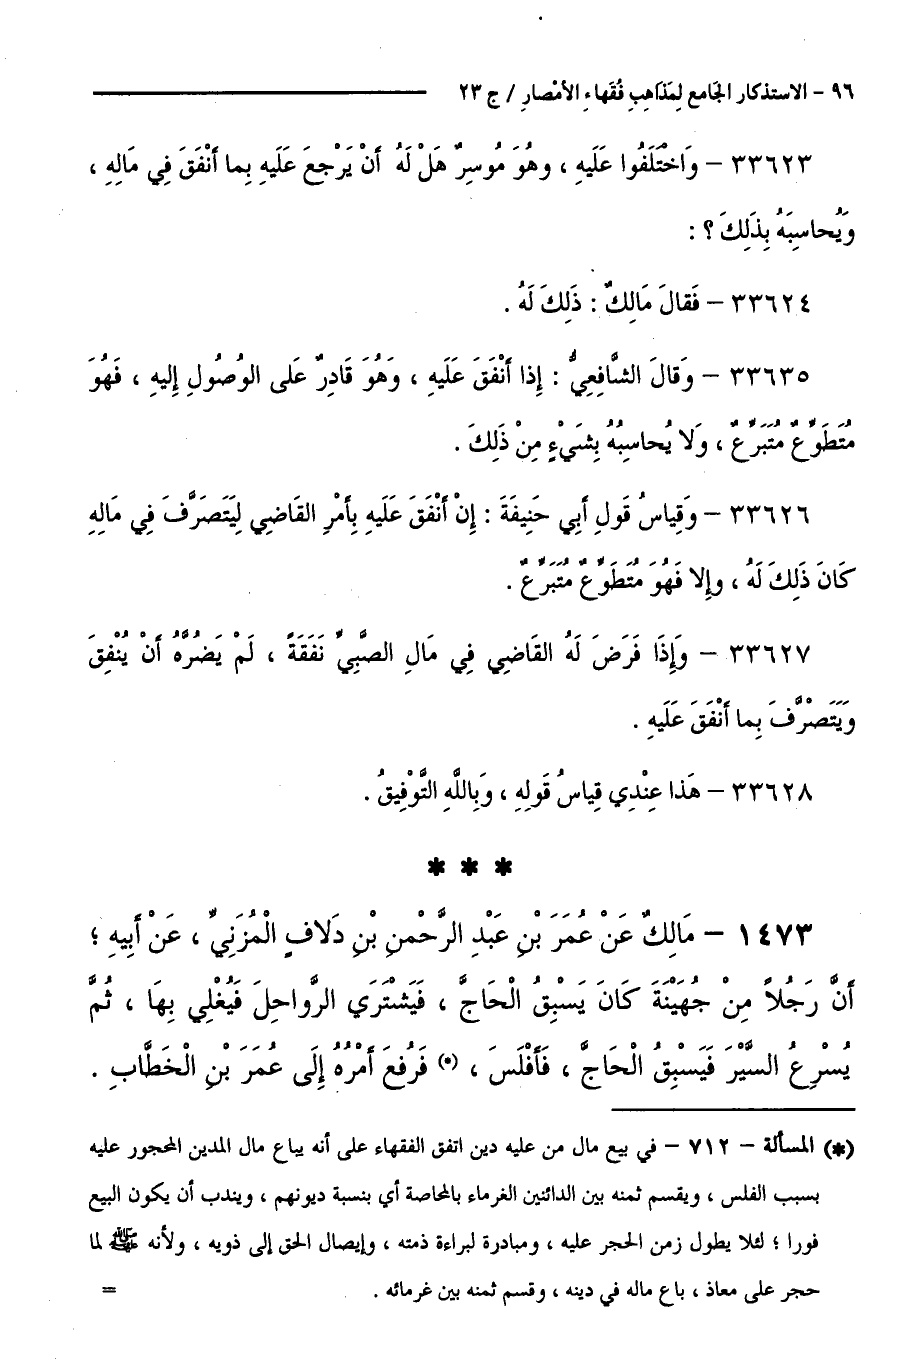 ٩٦ – الاستذكار الجَامع لِمَذَاهِبِ فُقَهاءِ الأمْصارِ / ج ٢٣
٣٣٦٢٣ – وَاخْتَلَفُوا عَلَيهِ ، وهُوَ مُوسِرٌ هَلْ لَهُ أنْ يَرْجعَ عَلَيهِ بِما أنْفَقَ فِي مَالِهِ ،
وَيُحاسِبَهُ بِذَلِكَ ؟ :
٣٣٦٢٤ – فَقالَ مَالِكٌ : ذَلِكَ لَهُ .
٣٣٦٣٥ – وَقالَ الشَّافِعِيُّ : إِذا أنْفَقَ عَلَيهِ ، وَهُوَ قَادِرٌ عَلى الوصُولِ إِليهِ ، فَهُوَ
مُتَطَوِّعٌ مُتَبَرِّعٌ ، وَلا يُحاسِبُهُ بِشَيْءٍ مِنْ ذَلِكَ .
٣٣٦٢٦ – وَقِياسُ قَولِ أبِي حَنِيفَةَ : إِنْ أنْفَقَ عَلَيهِ بِأمْرِ القَاضِي لِيَتَصَرَّفَ فِي مَالِهِ
كَانَ ذَلِكَ لَهُ ، وإِلا فَهُوَ مُتَطَوِّعٌ مُتَبَرِّعٌ .
٣٣٦٢٧ – وَإِذَا فَرَضَ لَهُ القَاضِي فِي مَالِ الصَّبِيِّ نَفَقَةً ، لَمْ يَضُرَّهُ أنْ يُنْفِقَ
وَيَتَصْرَّفَ بِما أنْفَقَ عَلَيهِ .
٣٣٦٢٨ – هَذا عِنْدِي قِياسُ قَولِهِ ، وَبِاللَّهِ التَّوْفِيقُ .
* * *
١٤٧٣ – مَالِكٌ عَنْ عُمَرَ بْنِ عَبْدِ الرَّحْمنِ بْنِ دَلافٍ الْمُزَنِيِّ ، عَنْ أَبِيهِ ؛
أَنَّ رَجُلاً مِنْ جُهَيْنَةَ كَانَ يَسبِقُ الْحَاجَّ ، فَيَشْتَرَي الرَّواحِلَ فَيُغْلِي بِهَا ، ثُمَّ
يُسْرِعُ السَّيْرَ فَيَسْبِقُ الْحَاجَّ ، فَأَفْلَسَ ، (*) فَرُفعَ أَمْرُهُ إِلَى عُمَرَ بْنِ الْخَطَّابِ .
(*) المسألة – ٧١٢ – في بيع مال من عليه دين اتفق الفقهاء على أنه يباع مال المدين المحجور عليه
بسبب الفلس ، ويقسم ثمنه بين الدائنين الغرماء بالمحاصة أي بنسبة ديونهم ، ويندب أن يكون البيع
فورا ؛ لئلا يطول زمن الحجر عليه ، ومبادرة لبراءة ذمته ، وإيصال الحق إلى ذويه ، ولأنه ﷺ لما
حجر على معاذ ، باع ماله في دينه ، وقسم ثمنه بين غرمائه . =